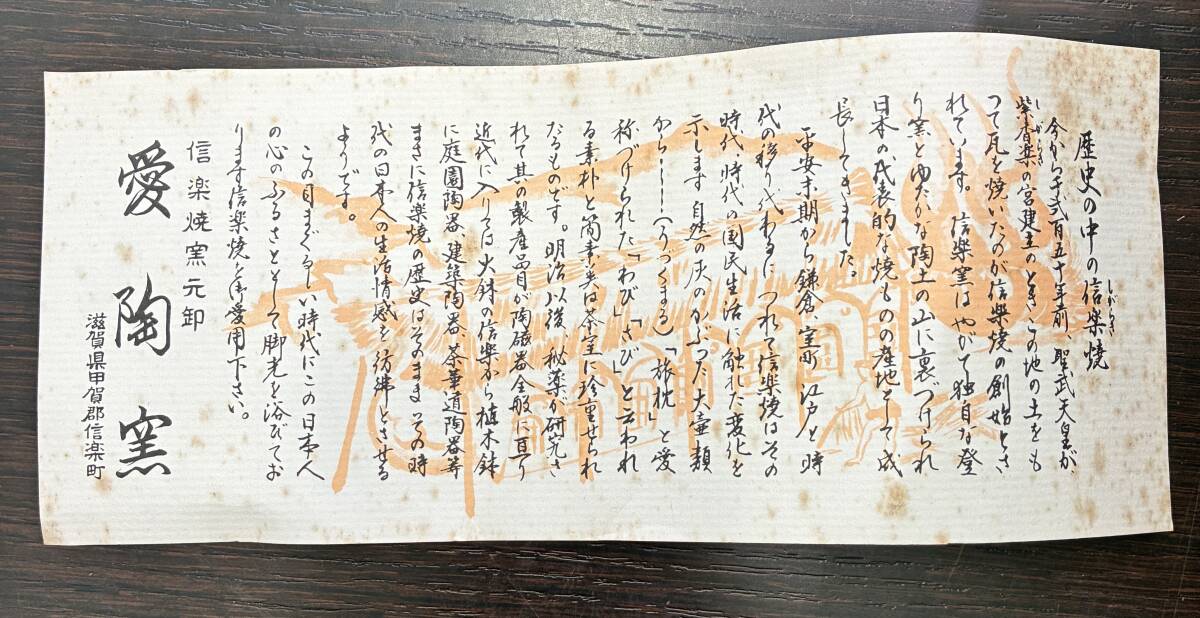 歴史の中の信楽焼
しがらき
今から千弐百五十年前、聖武天皇が、
紫香楽の宮建立のとき、この地の土をも
しがらき
つて瓦を焼いたのが信楽焼の創始とさ
れています。信楽窯はやがて独自な登
り窯とゆたかな陶土の山に裏づけられ
日本の代表的な焼ものの産地として成
長してきました。
平安末期から鎌倉、室町、江戸と時
代の移り代わるにつれて信楽焼はその
時代、時代の国民生活に触れた変化を
示します 自然の灰のかぶつた大壷類
から――(うづくまる)「旅枕」と愛
称づけられた「わび」「さび」と云われ
る素朴と簡素美は茶室に珍重せられ
たるものです。明治以後、秘薬が研究さ
れて其の製産品目が陶磁器全般に亘り
近代に入りては火鉢の信楽から植木鉢
に庭園陶器 建築陶器 茶華道陶器等
まさに信楽焼の歴史はそのまま その時
代の日本人の生活情感を彷彿とさせる
ようです。
この目まぐるしい時代にこの日本人
の心のふるさととして脚光を浴びてお
ります信楽焼を御愛用下さい。
信楽焼窯元卸
愛陶窯
滋賀県甲賀郡信楽町